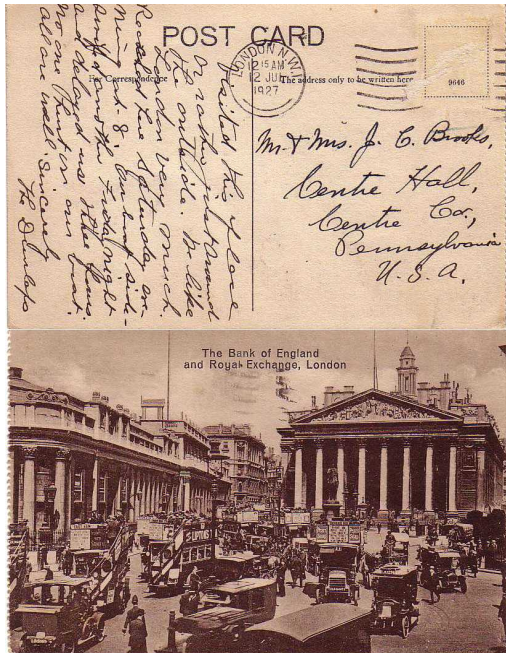 POST CARD
For Correspondence
The address only to be written here
LONDON N.W.
12 15 AM
12 JUL
1927
9646
Visited this place
or rather just around
the outside. We like
London very much.
Reached here Saturday
at 8. Our boat
another Friday night
and delayed us
No one hurt on our boat.
all are well. Sincerely
The Dunlaps
Mr. & Mrs. J. C. Brooks,
Centre Hall,
Centre Co.,
Pennsylvania
U.S.A.
The Bank of England
and Royal Exchange, London